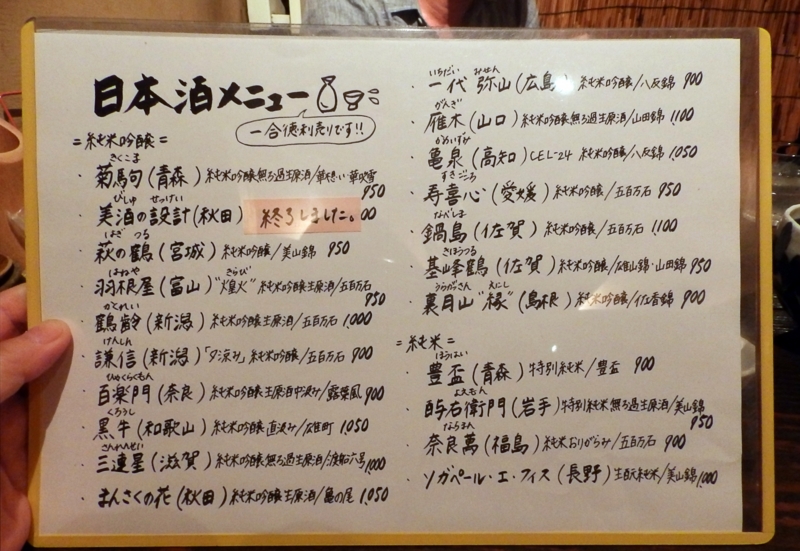 日本酒メニュー
一合徳利売りです!!
=純米吟醸=
きくこま
・菊駒(青森)純米吟醸無ろ過生原酒/華想い・華吹雪
950
びしゅ せっけい
・美酒の設計(秋田) 終了しました。00
はぎ つる
・萩の鶴(宮城)純米吟醸/美山錦 950
はねや きらび
・羽根屋(富山)"煌火"純米吟醸生原酒/五百万石
950
かくれい
・鶴齢(新潟)純米吟醸生原酒/五百万石 1,000
けんしん
・謙信(新潟)「夕涼み」純米吟醸/五百万石 900
ひゃくらくもん
・百楽門(奈良)純米吟醸生原酒中汲み/露葉風 900
くろうし
・黒牛(和歌山)純米吟醸直汲み/雄町 1,050
さんれんせい
・三連星(滋賀)純米吟醸無ろ過生原酒/渡船六号 1000
・まんさくの花(秋田)純米吟醸生原酒/亀の尾 1,050
いちだい みせん
・一代 弥山(広島)純米吟醸/八反錦 900
がんぎ
・雁木(山口)純米吟醸無ろ過生原酒/山田錦 1,100
かめいずみ
・亀泉(高知)CEL-24 純米吟醸/八反錦 1,050
すきごころ
・寿喜心(愛媛)純米吟醸/五百万石 950
なべしま
・鍋島(佐賀)純米吟醸/五百万石 1,100
きほうつる
・基峰鶴(佐賀)純米吟醸/雄山錦・山田錦 950
うらがっさん えにし
・裏月山"縁"(島根)純米吟醸/佐香錦 900
=純米=
ほうはい
・豊盃(青森)特別純米/豊盃 900
よえもん
・酉与右衛門(岩手)特別純米無ろ過生原酒/美山錦
950
ならまん
・奈良萬(福島)純米おりがらみ/五百万石 900
・ソガペール・エ・フィス(長野)生酛純米/美山錦 1,000